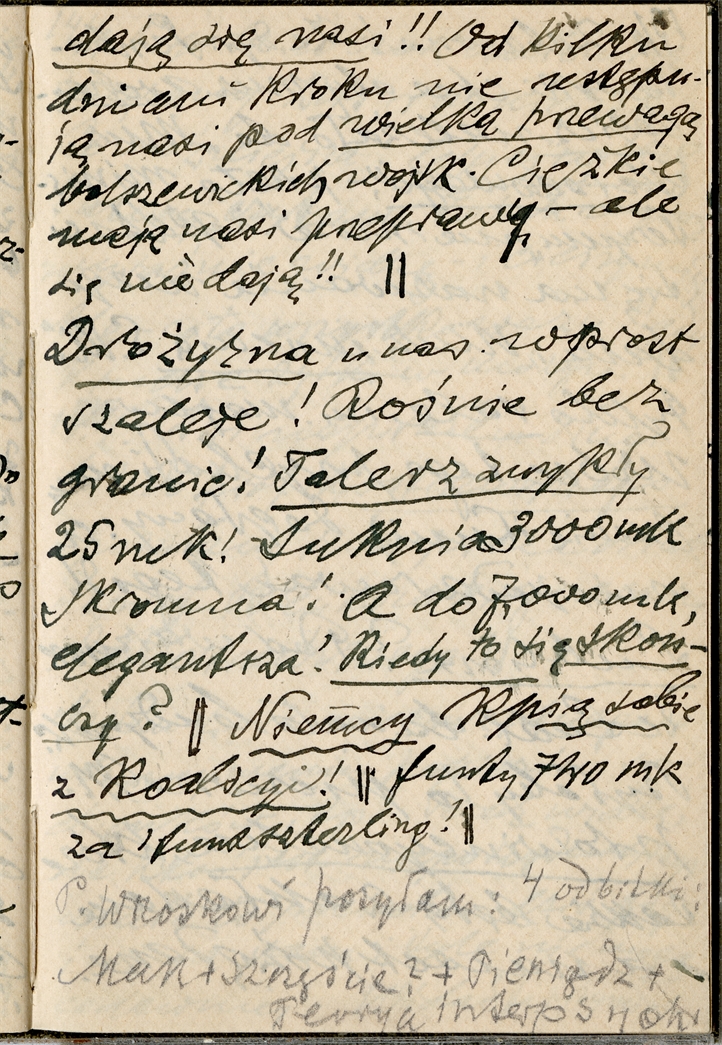 dają się nasi!! Od kilku
dni ani kroku nie ustępu-
ją nasi pod wielką przewagą
bolszewickich wojsk. Ciężkie
mają nasi przeprawy – ale
się nie dają!! ||
Drożyzna u nas wprost
szaleje! Rośnie bez
granic! Talerz zwykły
25 mk! Suknia 3000 mk
skromna! A do 7,000 mk,
elegantsza! Kiedy to się skoń-
czy? || Niemcy kpią sobie
z Koalicyi! || funty 740 mk
za 1 funt szterling! ||
P. Wroskowi posyłam: 4 odbitki:
Mak + Szczęście? + Pieniądz +
Teorya interpsych